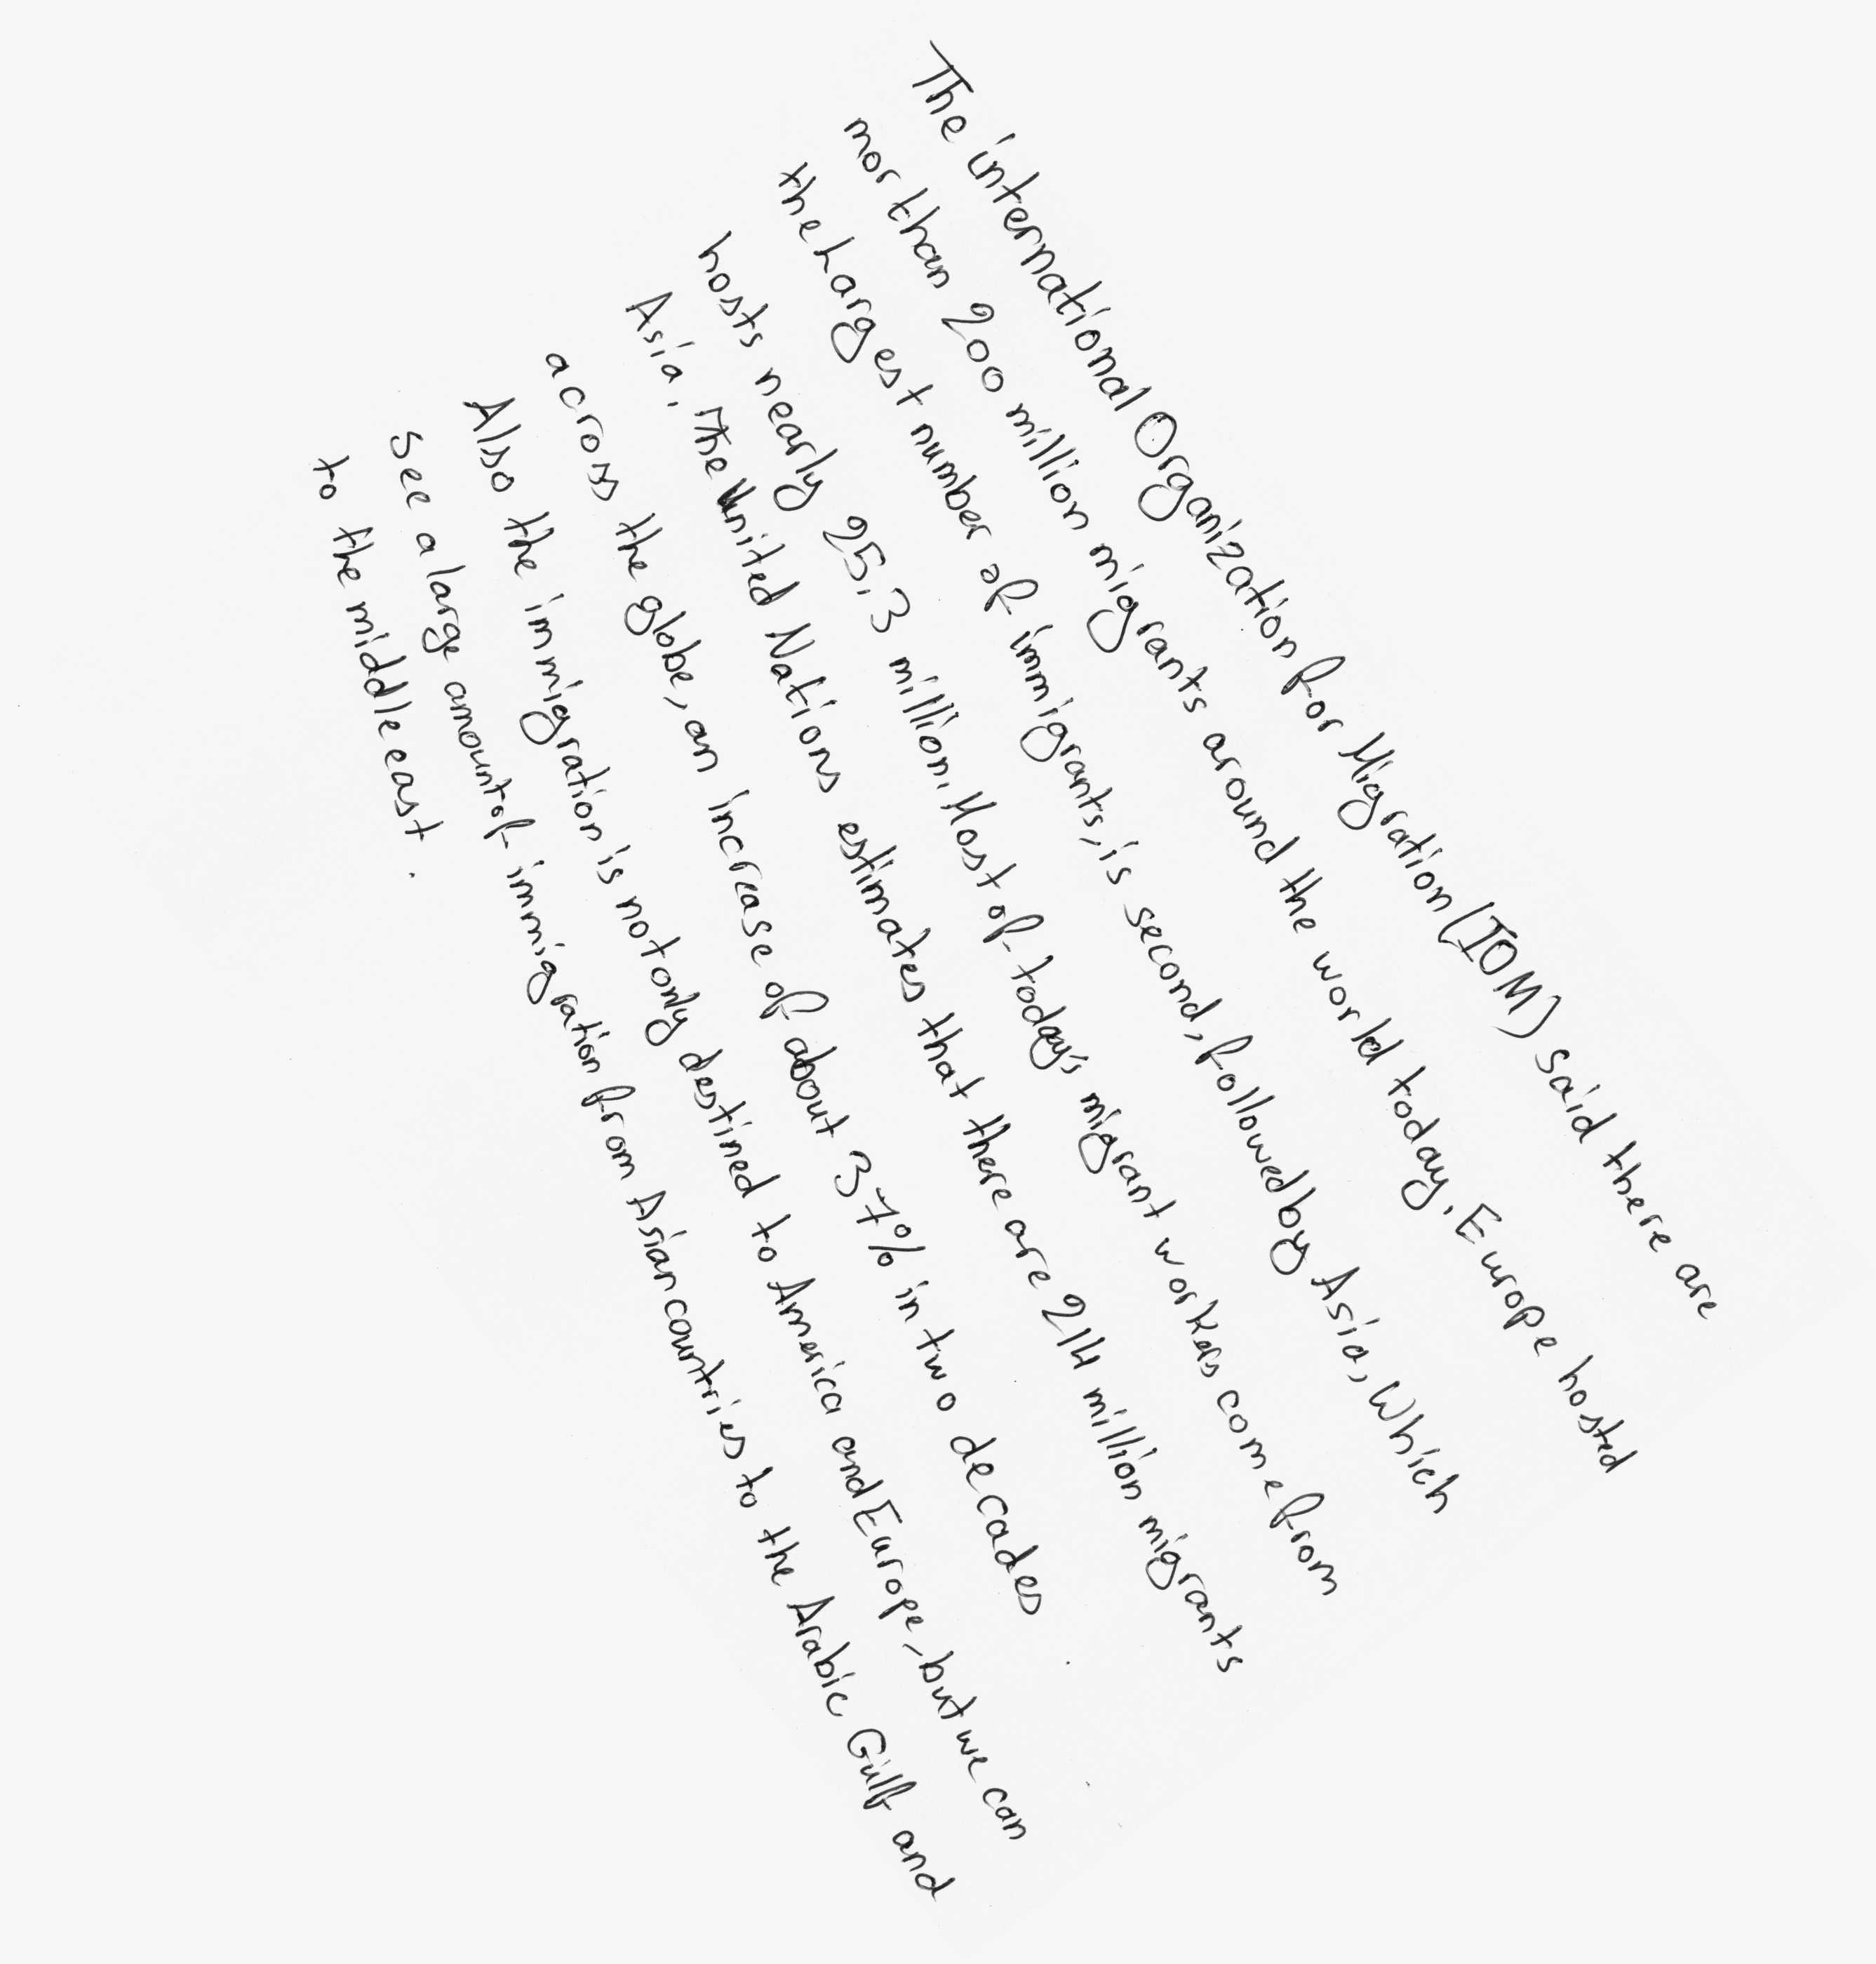 The international Organization for Migration (IOM) said there are
mor than 200 million migrants around the world today. Europe hosted
the Largest number of immigrants, is second, followed by Asia, Which
hosts nearly 25.3 million. Most of today's migrant workers come from
Asia. The United Nations estimates that there are 214 million migrants
across the globe, an increase of about 37% in two decades
Also the immigration is not only destined to America and Europe, but we can
see a large amount of immigration from Asian countries to the Arabic Gulf and
to the middle east.